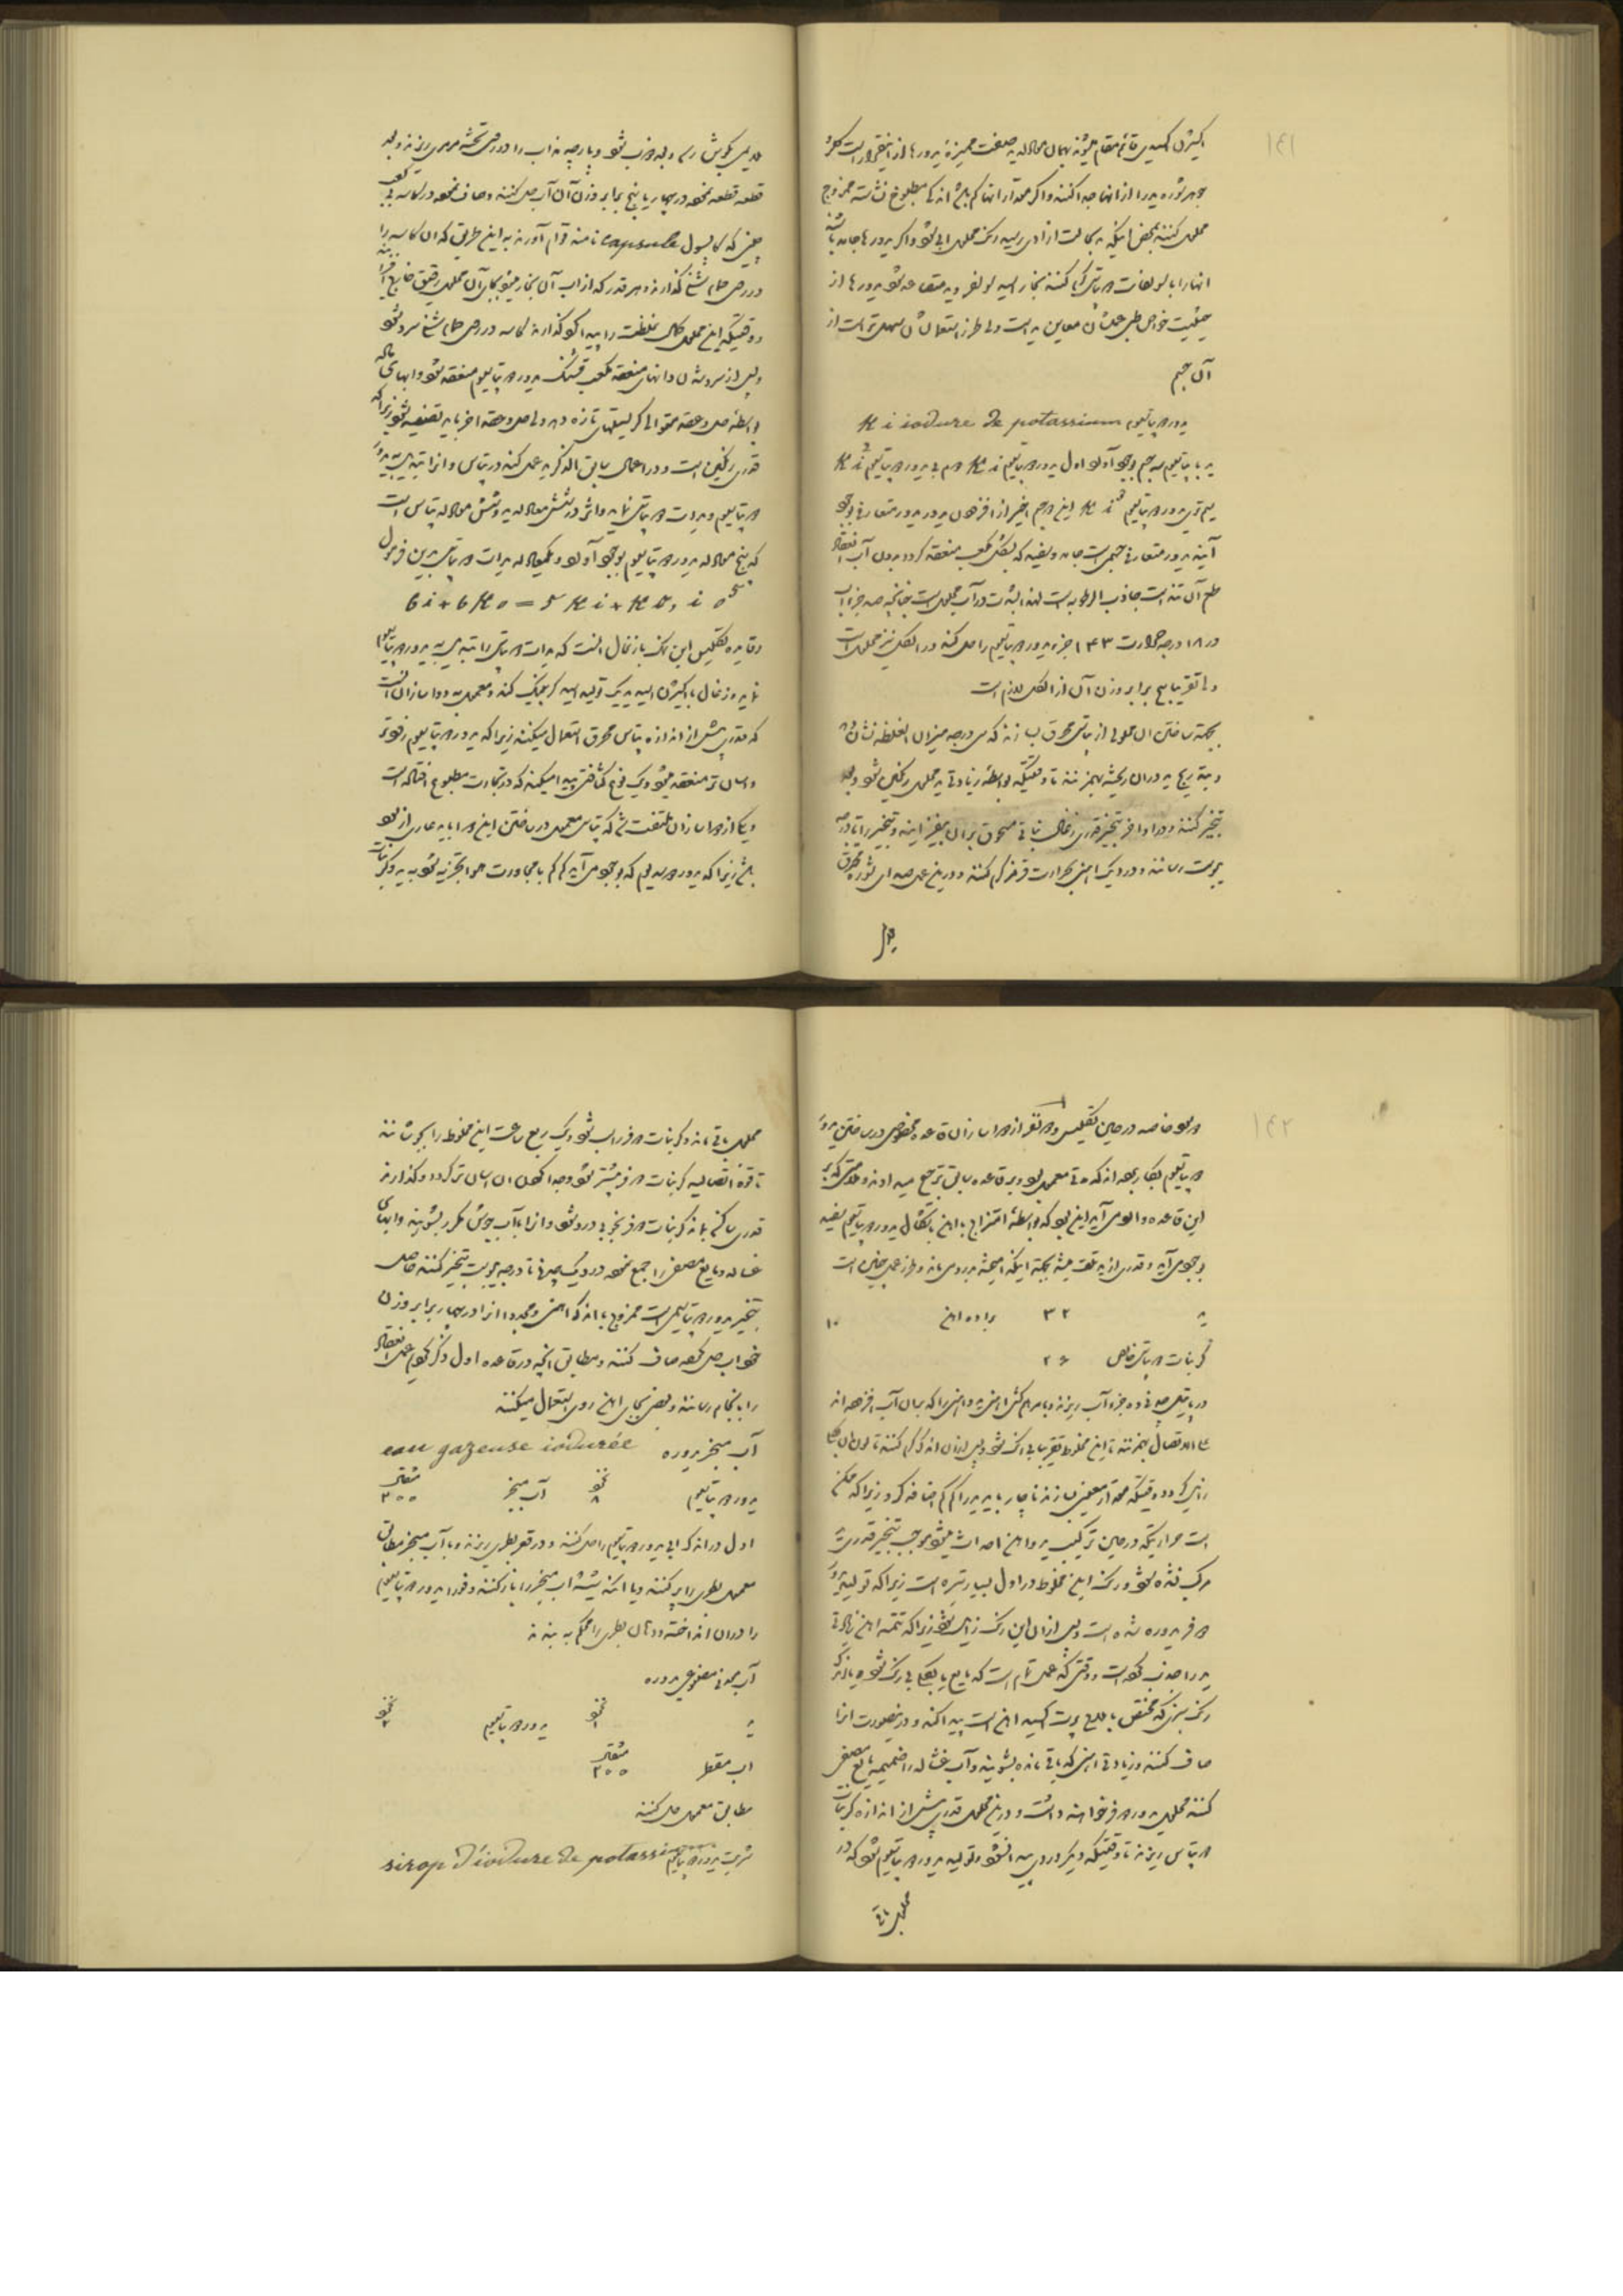 ١٤١
اکسیژن اکسید قائم مقام میشوند بهمان معادله ید صفت ممیزه یدورها از اینقرار است کلر
جوهر شوره ید را از آنها جدا کنند و اگر مقدار آنها کم باشد اندکی مطبوخ نشاسته ممزوج
محلول کنند بمحض اینکه ید بحالت آزادی رسید رنگ محلول آبی شود و اگر یدورها جامد باشند
آنها را با سولفات در پتاس گرم کنند بخار اسید سولفورو و ید متصاعد شود یدورها از
حیثیت خواص طبی عکشان معاین ید است ولی طرز استعمالشان سهلتر است از
آن جسم
یدور در پتاسیم K i iodure de potassium
ید با پتاسیم سه جسم بوجود آورد اول یدور در پتاسیم K i دوم بی یدور در پتاسیم K i²
سیم تری یدور در پتاسیم K i³ این دو جسم اخیر از افزودن ید در یدور متعارفی بوجود
آیند یدور متعارفی جسمی است جامد و سفید که بشکل مکعب منعقد گردد بدون آب انعقاد
طعم آن تند است جاذب الرطوبه است لهذا بشدت در آب محلول است چنانچه صد جزء آب
در ١٨ درجه حرارت ١٤٣ جزء یدور در پتاسیم را حل کند در الکل نیز محلول است
ولی تقریبا پنج برابر وزن آن از الکل لازم است
بجهة ساختن آن محلولی از پتاس محرق بسازند که سی درجه میزان الغلظه نشان دهد
و بتدریج ید در آن ریخته بهم زنند تا وقتیکه بواسطه زیادتی ید محلول رنگین شود و بعد
تبخیر کنند و در اواخر تبخیر قدری زغال نباتی مسحوق بر آن بیفزایند و تبخیر را تا درجه
یبوست رسانند و در دیک آهنی بحرارت قرمز گرم کنند و در این عمل صدای شوره محرق
قطعه قطعه نموده در چهار یا پنج برابر وزن آن آب حل کنند و صاف نموده در کاسه بی لعاب
چینی که کاپسول capsule نامند قوام آورند به این طریق که آن کاسه را
در رمل حمام شنی گذارند و هر قدر که از آب آن بخار میشود بجای آن محلول رقیق خانه‌ای افزایند
و وقتیکه این محلول کمال غلظت را پیدا کرد گذارند کاسه در رمل حمام شنی سرد شود
و پس از سرد شدن دانهای منعقد مکعب قشنگ یدور در پتاسیم منعقد شود و آبهای مادر
بواسطه حل و عقد متوالی کریستلهای تازه دهد ولی حل و عقد آخر باید تصفیه شود زیرا که
قدری رنگین است و در اعمال سابق الذکر ید عمل کند در پتاس و آنرا تبدیل به یدور
در پتاسیم و یدات در پتاس نماید و اثر در شش معادله ید و شش معادله پتاس است
که پنج معادله یدور در پتاسیم بوجود آورد و یکمعادله یدات در پتاس برین فرمول
6 i + 6 K o = 5 K i + K o, i o⁵
و فایده تکلیس این نمک با زغال آنست که یدات در پتاس را تبدیل به یدور در پتاسیم
نماید و زغال با اکسیژن اسید یدیک تولید اسید کربنیک کند و معمول به دواسازان آنست
که قدری بیش از اندازه پتاس محرق استعمال میکنند زیرا که یدور در پتاسیم زودتر
و آسان تر منعقد میشود و یک نوع کثافتی پیدا میکند که در تجارت مطبوع افتاده است
و یکی از دواسازان ملتفت شد که پتاس معمول در ساختن این دوا باید عاری از سود
باشد زیرا که یدور در سدیم که بوجود می آید کم کم با مجاورت هوا تجزیه شود به ید و کربنات
١٤٢
در سود خاصه در حین تکلیس و دو نفر از دواسازان قاعده مخصوصی در ساختن یدور
در پتاسیم بکار برده اند که مدتی معمول بود و بر قاعده سابق ترجیح میدادند و عمده مدتی که بر
این قاعده وا لازم می آید این بود که بواسطه امتزاج با آهن باشکال یدور در پتاسیم سفید
بوجود می آید و قدری از ید تلف میشد بجهة اینکه آمیخته بدردی ماند و طرز عمل چنین است
ید ٣٢ براده آهن ١٠
کربنات در پتاس خالص ٢٤
در پاتیلی چدنی ده جزء آب ریزند و با مراهم کش آهنی ید و آهن را که بر آن آب افزوده اند
علی الاتصال بهم زنند تا این مخلوط تقریبا بی رنگ شود و پس از آن اندک گرم کنند تا لون آن بکلی
زایل گردد و وقتیکه مقدار معینی بسازند ناچار باید ید را کم کم اضافه کرد زیرا که ممکن
است حرارتیکه در حین ترکیب ید و آهن احداث میشود موجب تبخیر قدری ید
مرکب نشده شود و رنگ این مخلوط در اول بسیار تیره است زیرا که تولید یدور
در فر یدوره شده است و پس از آن این رنگ زایل شود زیرا که تتمه آهن زیادتی
ید را جذب نموده است و وقتی که عمل تمام است که مایع یا بکلی بی رنگ شود یا اندک
رنگ سبزی که مختص باملاح پرت اکسید آهن است پیدا کند و در اینصورت آنرا
صاف کنند و زیادتی آهنی که باقی مانده بشویند و آب غساله را ضمیمه مایع مصفی
کنند محلول یدور در فر خواهند داشت و در این محلول قدری بیش از اندازه کربنات
در پتاس ریزند تا وقتیکه دیگر دردی پیدا نشود و تولید یدور در پتاسیم شود که در
محلول باقی
محلول باقی ماند و کربنات در فر راسب شود و یک ربع ساعت این مخلوط را بجوشانند
تا قوه اتصالیه کربنات در فر بیشتر شود و جدا کردن آن آسان تر گردد و گذارند
قدری ساکن بماند کربنات در فر بخوبی درد شود و آنرا با آب جوش مکرر بشویند و آبهای
غساله و مایع مصفی را جمع نموده در دیک چدنی تا درجه یبوست تبخیر کنند حاصل
تبخیر یدور در پتاسیمی است ممزوج با اندک آهن و مجددا آنرا در چهار برابر وزن
خود آب حل کرده صاف کنند و مطابق آنچه در قاعده اول ذکر کردیم عمل انعقاد
را بانجام رسانند و بعضی بجای آهن روی استعمال میکنند
آب مبخر یدوره eau gazeuse iodurée
یدور در پتاسیم نخود ٨ آب مبخر مثقال ٣٠٠
اول در اندک آبی یدور در پتاسیم را حل کنند و در قعر بطری ریزند و با آب مبخر مطابق
معمول بطری را پر کنند و یا آنکه شیشه آب مبخر را باز کنند و فورا یدور در پتاسیم
را در آن انداخته و دهان بطری را محکم به بندند
آب معدنی مصنوعی یدوره
ید نخود ١ یدور در پتاسیم نخود ٢
آب مقطر مثقال ٢٠٠
مطابق معمول حل کنند
شربت یدور در پتاسیم sirop d'iodure de potassium